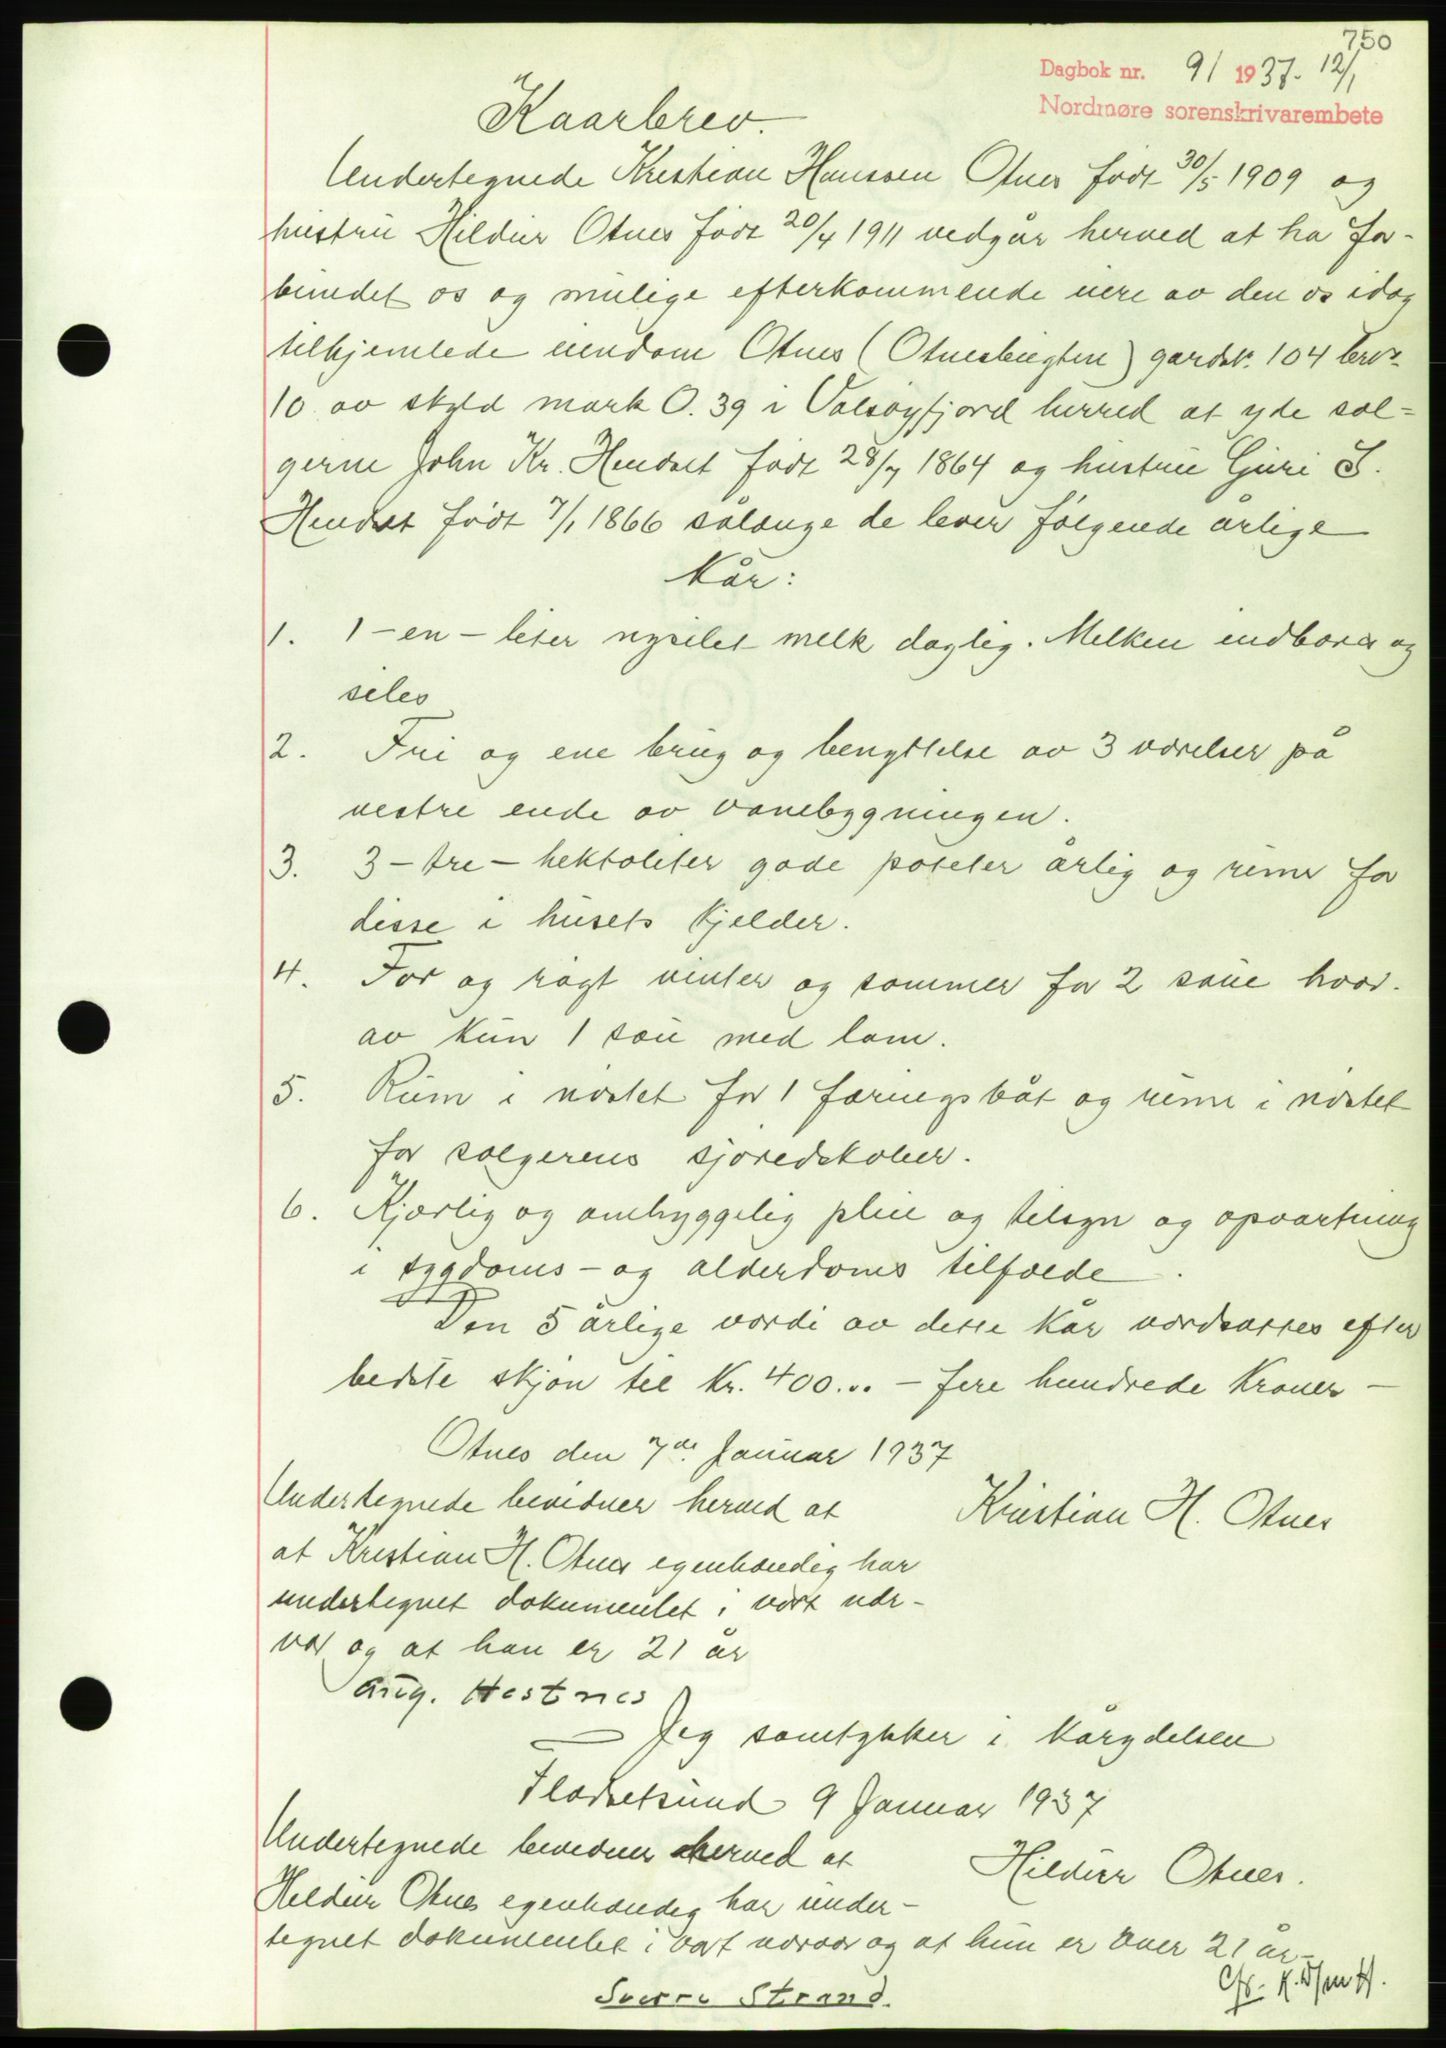 750
Dagbok nr. 91 1937. 12/1
Nordmøre sorenskrivarembete
Kaarbrev.
Undertegnede Kristian Hanssen Otnes født 30/5 1909 og
hustru Hildur Otnes født 20/4 1911 vedgår herved at ha for-
bundet os og mulige efterkommende eiere av den os idag
tilhjemlede eiendom Otnes (Otnesbugten) gardsnr. 104 brnr.
10 av skyld mark 0.39 i Valsøyfjord herred at yde sæl-
gerne John Kr. Hendset født 28/7 1864 og hustru Guri S.
Hendset født 7/1 1866 sålænge de lever følgende årlige
Kår:
1. 1 - en - liter nysilet melk daglig. Melken indbæres og
siles
2. Fri og ene brug og benyttelse av 3 værelser på
vestre ende av vånebygningen.
3. 3 - tre - hektoliter gode poteter årlig og rum for
disse i husets kjelder.
4. For og røgt vinter og sommer for 2 saue hvor-
av kun 1 sau med lam.
5. Rum i nøstet for 1 færingsbåt og rum i nøstet
for sælgerens sjøredskaber.
6. Kjærlig og omhyggelig pleie og tilsyn og opvartning
i sygdoms - og alderdoms tilfælde.
Den 5 årlige værdi av disse kår værdsættes efter
bedste skjøn til kr. 400... - fire hundrede kroner -
Otnes den 7de Januar 1937
Undertegnede bevidner herved at
Kristian H. Otnes
at Kristian H. Otnes egenhændig har
undertegnet dokumentet i vort nær-
vær og at han er 21 år
Aug. Hestnes
Jeg samtykker i kårydelsen
Fladsetsund 9 Januar 1937
Undertegnede bevidner herved at
Hildur Otnes.
Hildur Otnes egenhændig har under-
tegnet dokumentet i vort nærvær og at hun er over 21 år -
Sverre Strand.